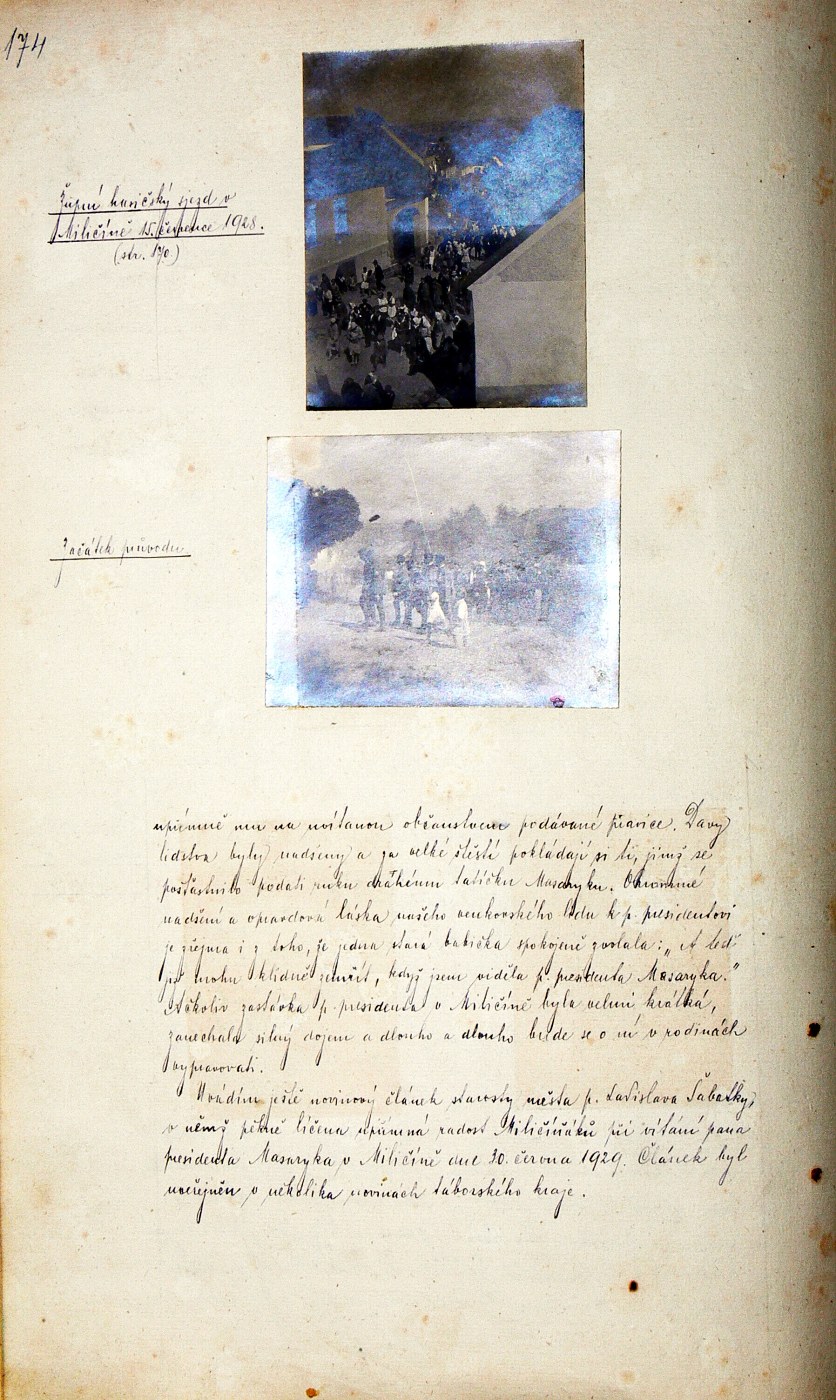 174
Župní hasičský sjezd v
Miličíně 15. července 1928.
(str. 170.)
Začátek průvodu
upřímně mu na uvítanou občanstvem podávané pravice. Davy
lidstva byly nadšeny a za velké štěstí pokládají si ti, jimž se
poštěstnilo podati ruku drahému tatíčku Masaryku. Ohromné
nadšení a opravdová láska našeho venkovského lidu k p. presidentovi
je zřejma i z toho, že jedna stará babička spokojeně zvolala: „A teď
již mohu klidně zemřít, když jsem viděla p. presidenta Masaryka."
Ačkoliv zastávka p. presidenta v Miličíně byla velmi krátká,
zanechala silný dojem a dlouho a dlouho bude se o ní v rodinách
vypravovati.
Uvádím ještě novinový článek starosty města p. Ladislava Šabatky,
v němž pěkně líčena upřímná radost Miličíňáků při vítání pana
presidenta Masaryka v Miličíně dne 30. června 1929. Článek byl
uveřejněn v několika novinách táborského kraje.